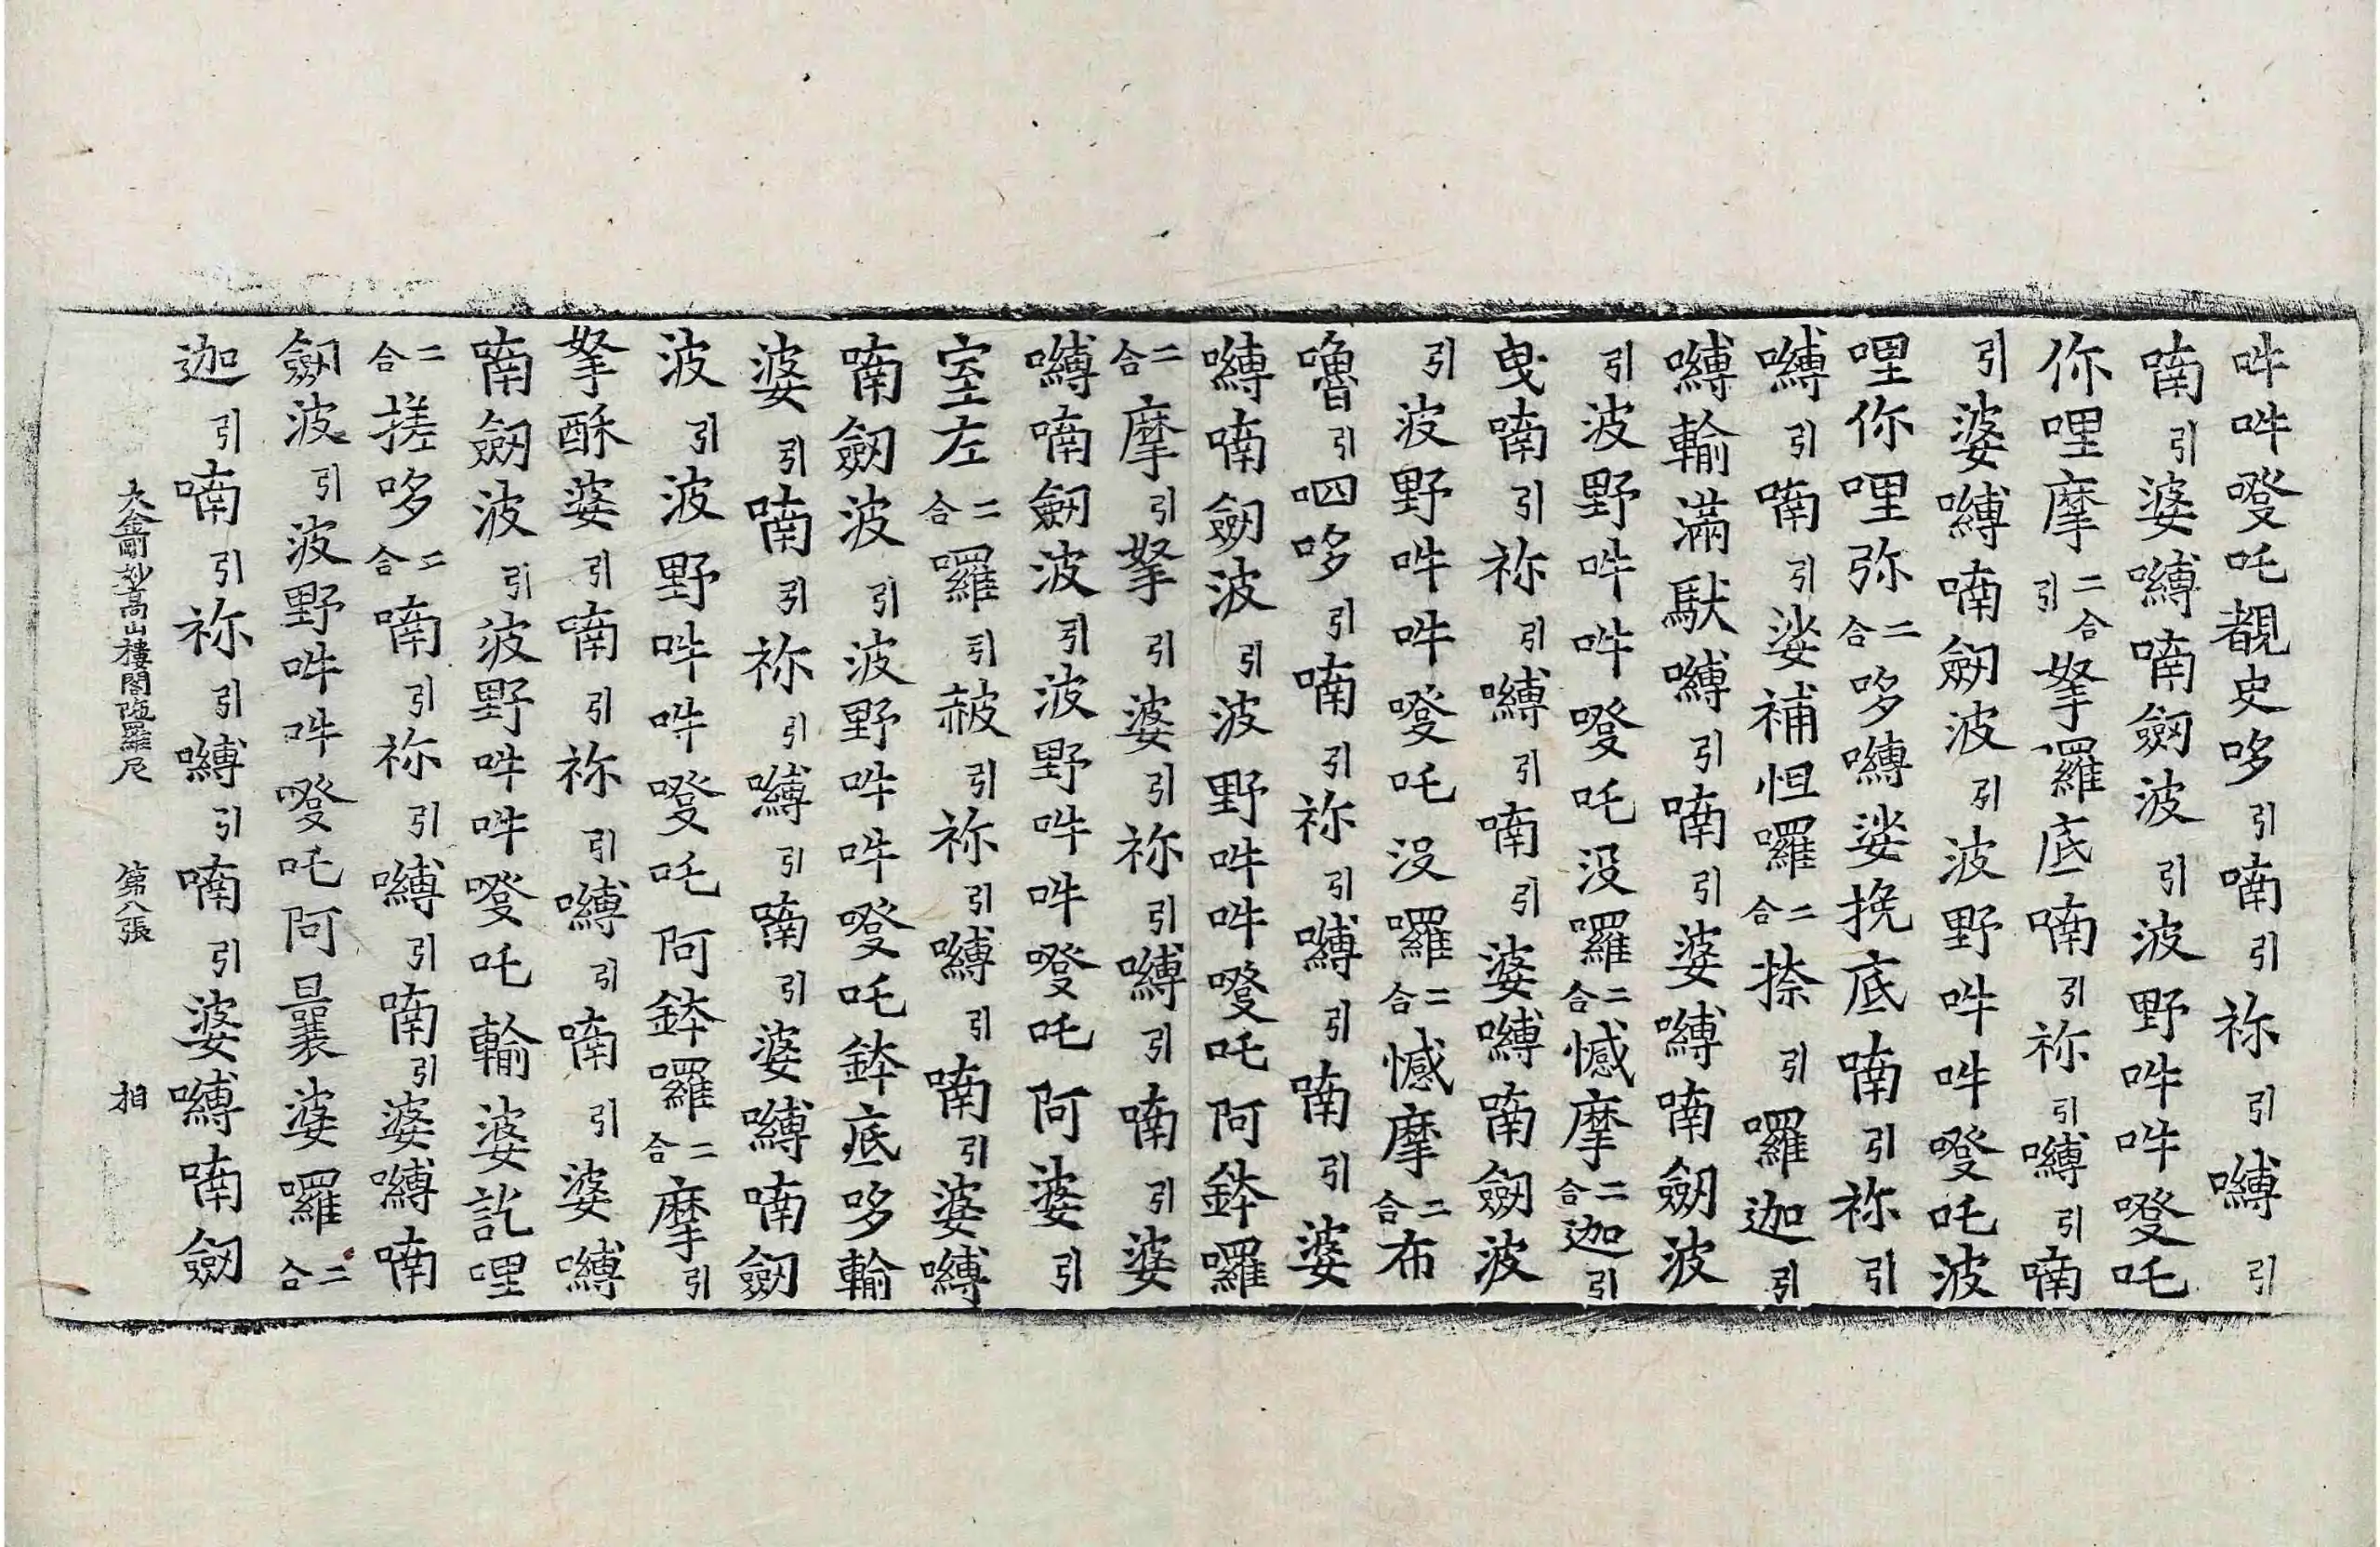 吽吽㗶吒覩史哆引喃引祢引嚩引
喃引婆嚩喃劔波引波野吽吽㗶吒
你哩摩二合引拏囉底喃引祢引嚩引喃
引婆嚩喃劔波引波野吽吽㗶吒波
哩你哩弥二合哆嚩娑挽底喃引祢引
嚩引喃引娑補怛囉二合捺引囉迦引
嚩輸滿馱嚩引喃引婆嚩喃劔波
引波野吽吽㗶吒没囉二合憾摩二合迦引
曳喃引祢引嚩引喃引婆嚩喃劔波
引波野吽吽㗶吒没囉二合憾摩二合布
嚕引呬哆引喃引祢引嚩引喃引婆
嚩喃劔波引波野吽吽㗶吒阿鉢囉
二合摩引拏引婆引祢引嚩引喃引婆
嚩喃劔波引波野吽吽㗶吒阿婆引
室左二合囉引赧引祢引嚩引喃引婆嚩
喃劔波引波野吽吽㗶吒鉢底哆輸
婆引喃引祢引嚩引喃引婆嚩喃劔
波引波野吽吽㗶吒阿鉢囉二合摩引
拏酥婆引喃引祢引嚩引喃引婆嚩
喃劔波引波野吽吽㗶吒輸婆訖哩
二合搓哆二合喃引祢引嚩引喃引婆嚩喃
劔波引波野吽吽㗶吒阿曩婆囉二合
迦引喃引祢引嚩引喃引婆嚩喃劔
大金剛妙高山樓閣陁羅尼 第八張 相